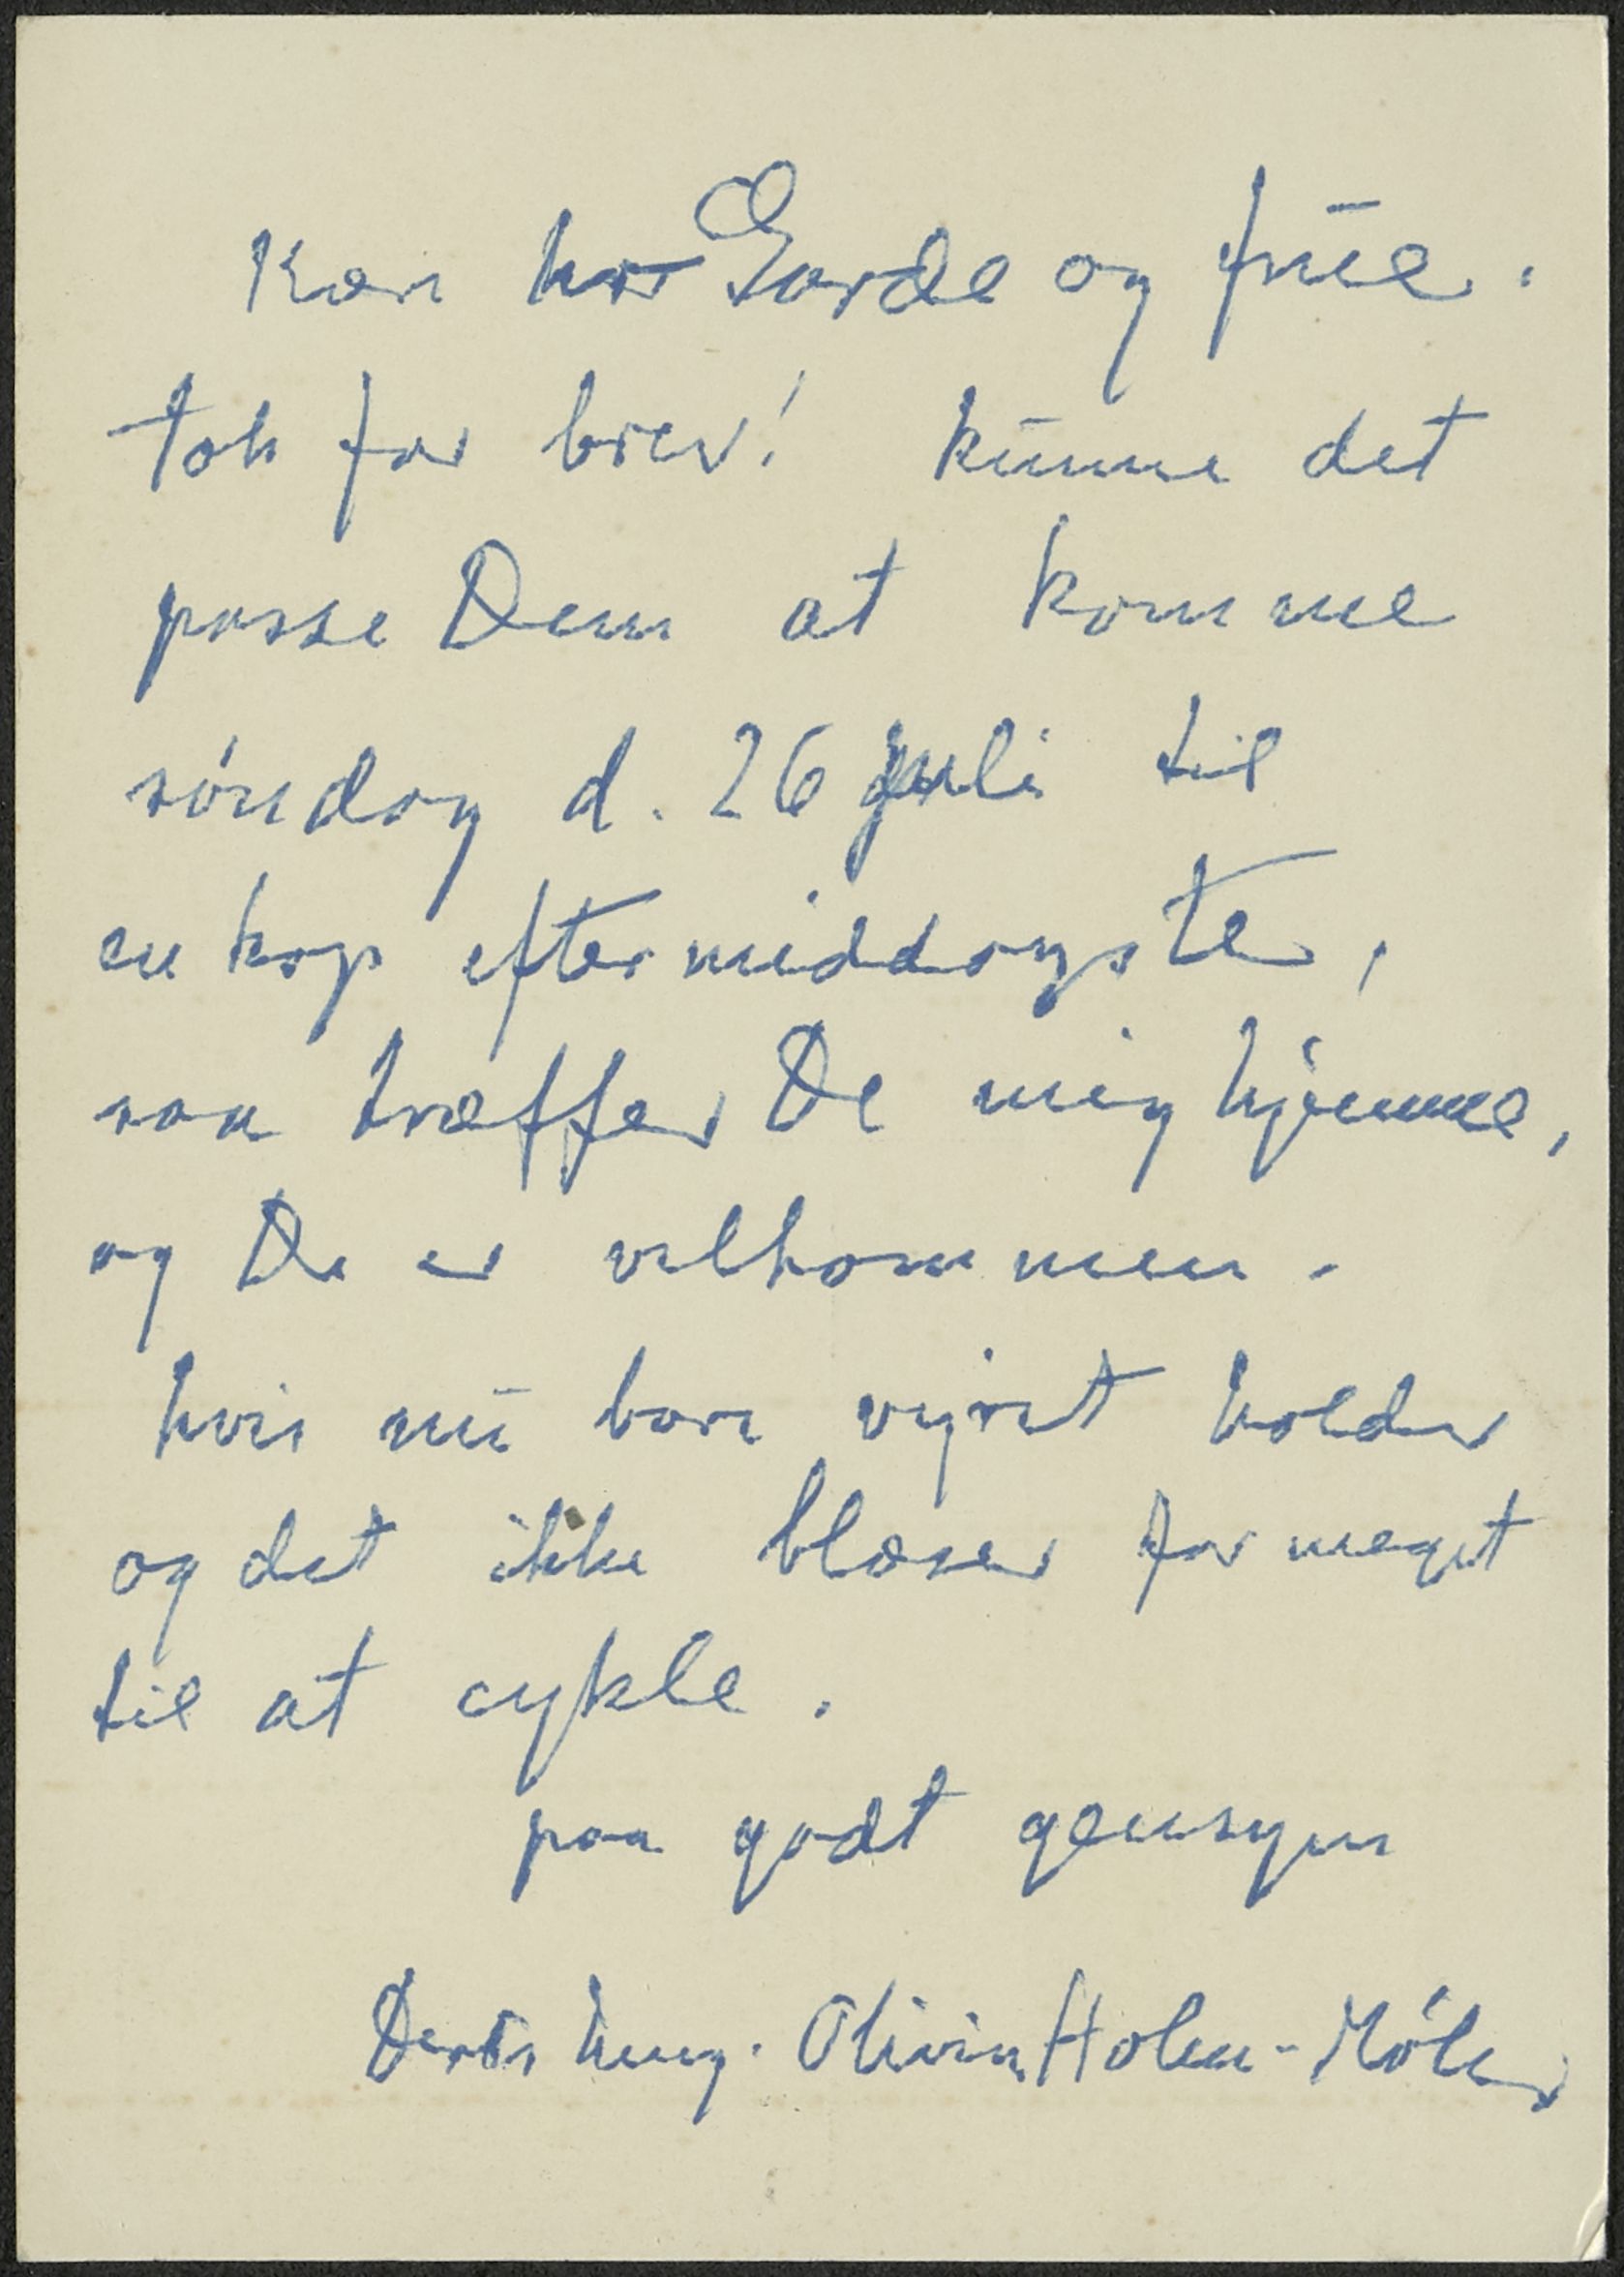 Kære hr Garde og frue.
tak for brev! kunne det
passe Dem at komme
søndag d. 26 juli til
en kop eftermiddagste,
saa træffer De mig hjemme,
og De er velkommen.
hvis nu bare vejret holder
og det ikke blæser for meget
til at cykle.
paa godt gensyn
Deres heng. Olivia Holm-Møller